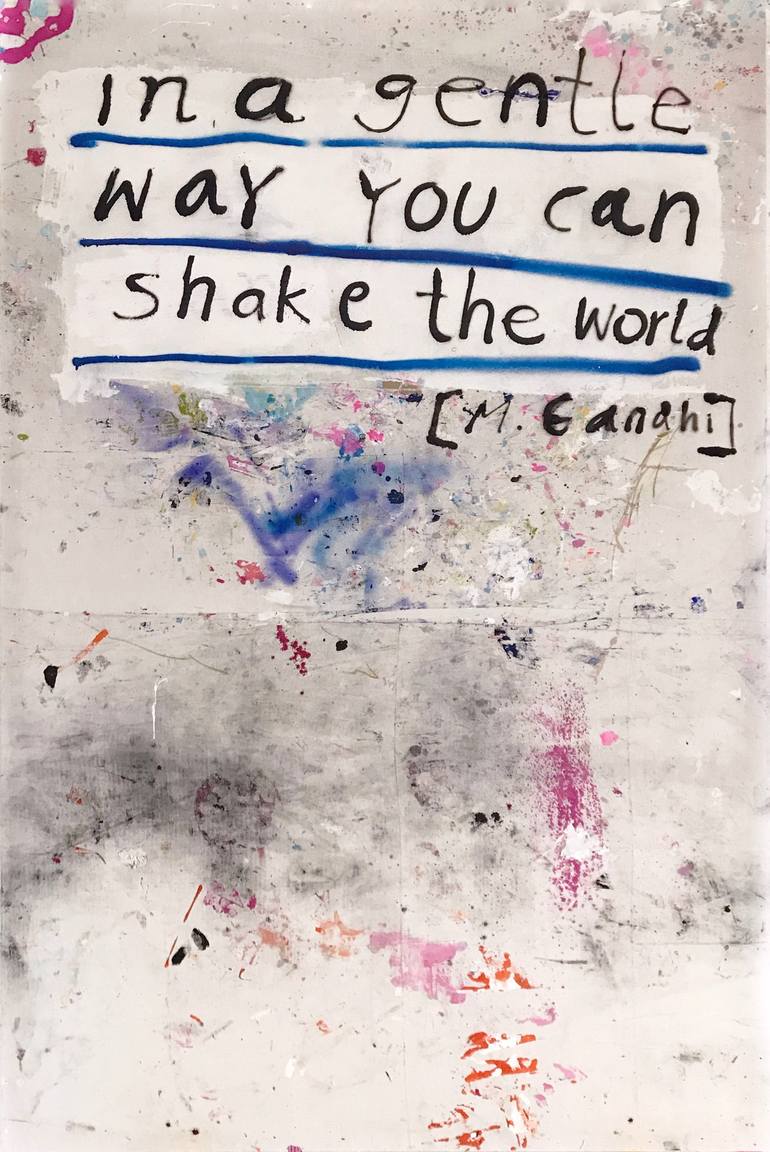 in a gentle
way you can
shake the world
[M. Gandhi]